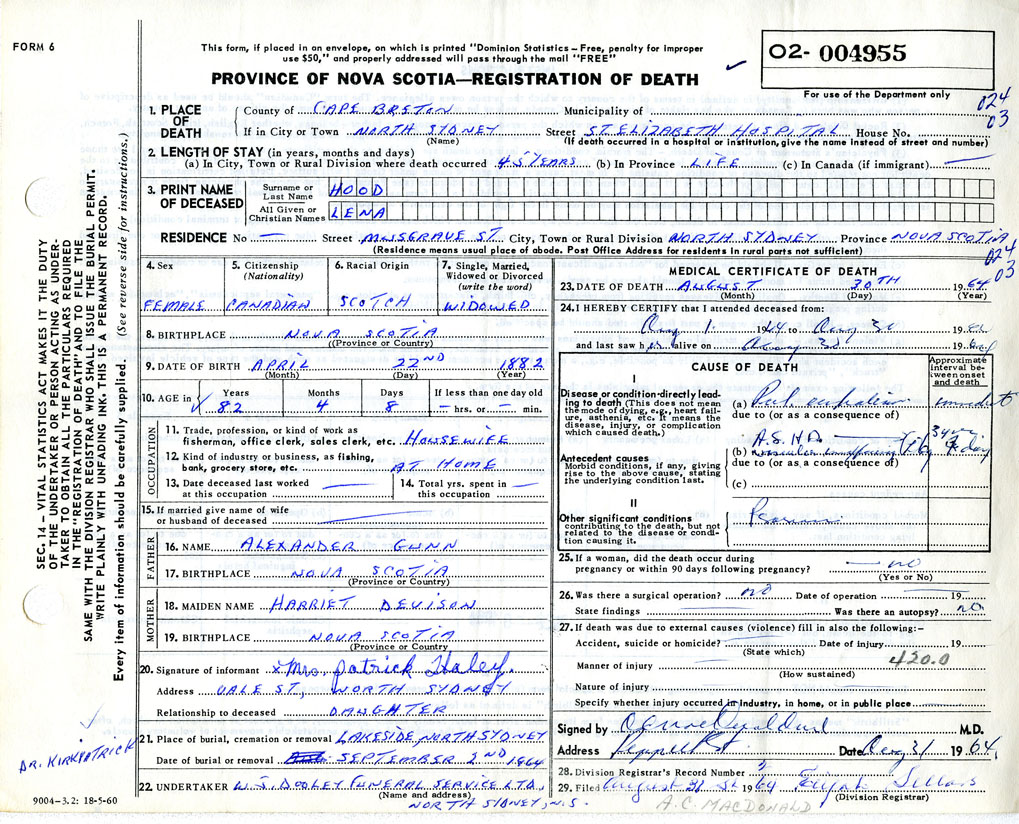 FORM 6
This form, if placed in an envelope, on which is printed "Dominion Statistics – Free, penalty for improper
use $50," and properly addressed will pass through the mail "FREE"
PROVINCE OF NOVA SCOTIA—REGISTRATION OF DEATH
O2- 004955
For use of the Department only
024
03
1. PLACE OF DEATH
County of CAPE BRETON Municipality of
If in City or Town NORTH SYDNEY Street ST. ELIZABETH HOSPITAL House No.
(Name) (If death occurred in a hospital or institution, give the name instead of street and number)
2. LENGTH OF STAY (in years, months and days)
(a) In City, Town or Rural Division where death occurred 45 YEARS (b) In Province LIFE (c) In Canada (if immigrant) —
3. PRINT NAME OF DECEASED
Surname or Last Name HOOD
All Given or Christian Names LENA
RESIDENCE No — Street MUSGRAVE ST. City, Town or Rural Division NORTH SYDNEY Province NOVA SCOTIA
(Residence means usual place of abode. Post Office Address for residents in rural parts not sufficient)
024
03
4. Sex
FEMALE
5. Citizenship
(Nationality)
CANADIAN
6. Racial Origin
SCOTCH
7. Single, Married,
Widowed or Divorced
(write the word)
WIDOWED
8. BIRTHPLACE NOVA SCOTIA
(Province or Country)
9. DATE OF BIRTH APRIL 22ND 1882
(Month) (Day) (Year)
10. AGE in Years Months Days If less than one day old
82 4 8 — hrs. or — min.
OCCUPATION
11. Trade, profession, or kind of work as
fisherman, office clerk, sales clerk, etc. HOUSEWIFE
12. Kind of industry or business, as fishing,
bank, grocery store, etc. AT HOME
13. Date deceased last worked
at this occupation —
14. Total yrs. spent in
this occupation —
15. If married give name of wife
or husband of deceased —
FATHER
16. NAME ALEXANDER GUNN
17. BIRTHPLACE NOVA SCOTIA
(Province or Country)
MOTHER
18. MAIDEN NAME HARRIET DEVISON
19. BIRTHPLACE NOVA SCOTIA
(Province or Country)
20. Signature of informant x Mrs. Patrick Haley.
Address VALE ST, NORTH SYDNEY
Relationship to deceased DAUGHTER
21. Place of burial, cremation or removal LAKESIDE, NORTH SYDNEY
Date of burial or removal SEPTEMBER 2ND 1964
22. UNDERTAKER W.J. DOOLEY FUNERAL SERVICE LTD,
(Name and address)
NORTH SYDNEY, N.S.
MEDICAL CERTIFICATE OF DEATH
23. DATE OF DEATH AUGUST 30TH 1964
(Month) (Day) (Year)
24. I HEREBY CERTIFY that I attended deceased from:
Aug 1 to Aug 30 19
and last saw h er alive on Aug 30 19
CAUSE OF DEATH
Approximate
interval be-
tween onset
and death
I
Disease or condition directly lead-
ing to death (This does not mean
the mode of dying, e.g., heart fail-
ure, asthenia, etc. It means the
disease, injury, or complication
which caused death.)
(a)
due to (or as a consequence of)
A.S.H.D.
Antecedent causes
Morbid conditions, if any, giving
rise to the above cause, stating
the underlying condition last.
(b)
due to (or as a consequence of)
(c)
II
Other significant conditions
contributing to the death, but not
related to the disease or condi-
tion causing it.
25. If a woman, did the death occur during
pregnancy or within 90 days following pregnancy? — no
(Yes or No)
26. Was there a surgical operation? no Date of operation 19
State findings Was there an autopsy? no
27. If death was due to external causes (violence) fill in also the following:–
Accident, suicide or homicide? Date of injury 19
(State which)
420.0
Manner of injury
(How sustained)
Nature of injury
Specify whether injury occurred in industry, in home, or in public place
Signed by M.D.
Address Date Aug 31 1964
28. Division Registrar's Record Number
29. Filed August 31 st 1964
(Division Registrar)
A.C. MACDONALD
SEC. 14 – VITAL STATISTICS ACT MAKES IT THE DUTY
OF THE UNDERTAKER OR PERSON ACTING AS UNDER-
TAKER TO OBTAIN ALL THE PARTICULARS REQUIRED
IN THE "REGISTRATION OF DEATH" AND TO FILE THE
SAME WITH THE DIVISION REGISTRAR WHO SHALL ISSUE THE BURIAL PERMIT.
WRITE PLAINLY WITH UNFADING INK. THIS IS A PERMANENT RECORD.
Every item of information should be carefully supplied. (See reverse side for instructions.)
DR. KIRKPATRICK
9004–3.2: 18-5-60